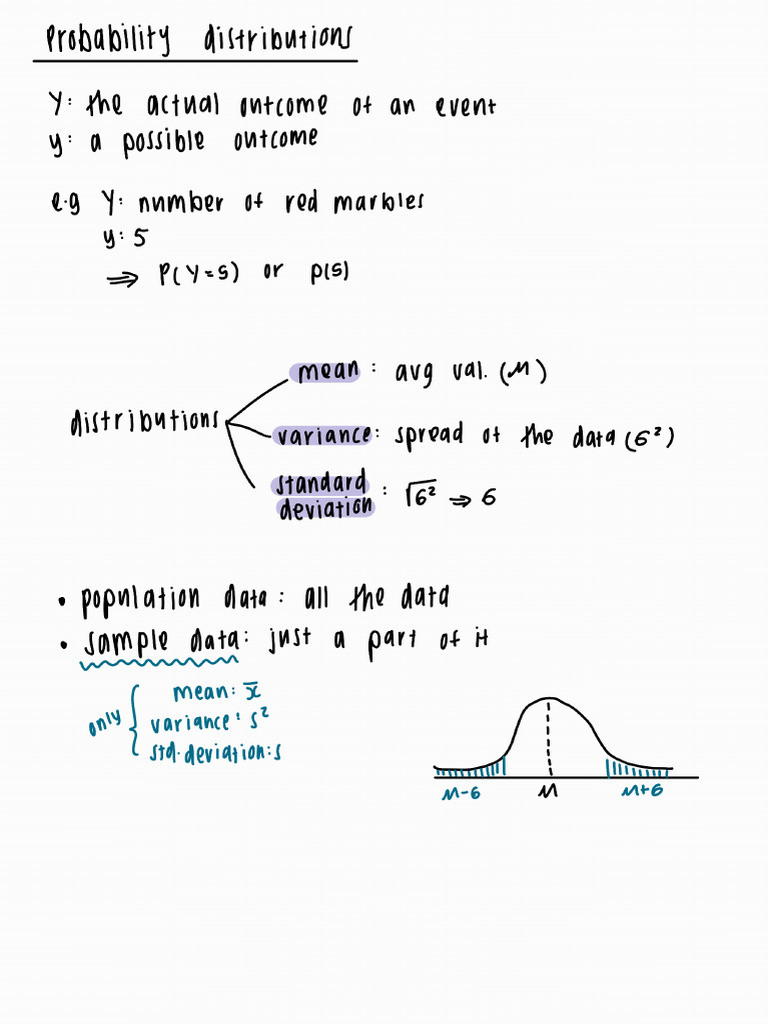 Probability distributions
Y: the actual outcome of an event
y: a possible outcome
e.g Y: number of red marbles
y: 5
⇒ P(Y=5) or p(5)
distributions
mean: avg val. (μ)
variance: spread of the data (σ²)
standard deviation: √σ² ⇒ σ
• population data: all the data
• sample data: just a part of it
only { mean: x̄
variance: s²
std. deviation: s
μ-σ μ μ+σ